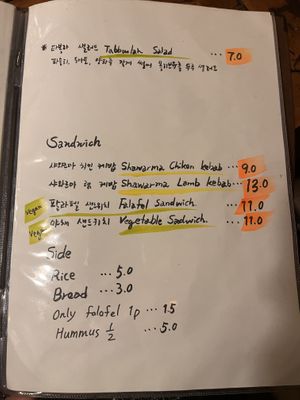 * 타볼리 샐러드 Tabboulah Salad ... 7.0
파슬리, 토마토, 양파를
Sandwich
샤와르마 치킨 케밥 Shawarma Chiken kebab ... 9.0
샤와르마 램 케밥 Shawarma Lamb kebab ... 13.0
Vegan 팔라펠 샌드위치 Falafol Sandwich. ... 11.0
Vegan 야채 샌드위치 Vegetable Sadwich. ... 11.0
Side
Rice ... 5.0
Bread ... 3.0
Only falafel 1p ... 1.5
Hummus 1/2 ... 5.0